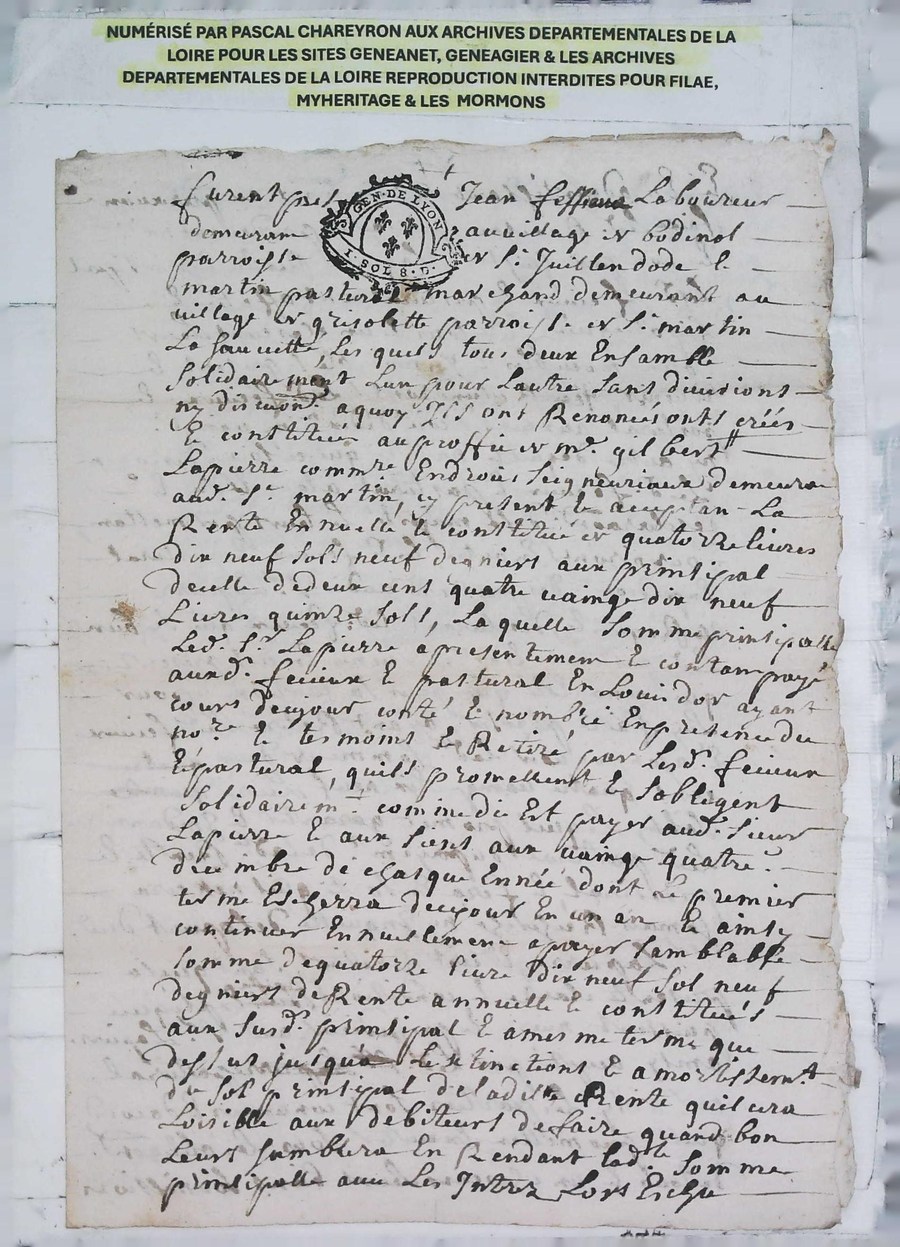 NUMÉRISÉ PAR PASCAL CHAREYRON AUX ARCHIVES DEPARTEMENTALES DE LA
LOIRE POUR LES SITES GENEANET, GENEAGIER & LES ARCHIVES
DEPARTEMENTALES DE LA LOIRE REPRODUCTION INTERDITES POUR FILAE,
MYHERITAGE & LES MORMONS
GEN·DE LYON
1·SOL 8·D·
furent pres Jean Laboureur
demeurant au village bodinol
parroisse St Juillen dode &
martin pastural marchand demeurant au
village grisolette parroisse St martin
La sauvetté, Les quels tous deux Ensamble
Solidairement Lun pour Lautre Sans divisions
ny discuons aquoy Ils ont Renoncés onts créés
& constitués auproffit mre gilbert
Lapierre commre Endroits seigneuriaux demeurant
aud. St martin, cy present & aceptan La
Rente Ennuelle & constituée quatorze livres
dix neuf sols neuf deniers aux prinsipal
decelle dedeux cent quatre vaingt dix neuf
Livres quinze sols, Laquelle Somme prinsipalle
Led. Sr Lapierre apresentement & contant payé
auxd. fecieux & pastural En Louis dor ayant
cours decejour conté & nombré Enpresence du
nore & tesmoins & Retiré par Lesd. fecieux
& pastural, quils promettent & sobligent
Solidairemt comme dit Est payer aud. Sieur
Lapierre & aux siens aux vaingt quatre
decembre de chasque Ennée dont le premier
terme Escherra decejour En un an & ainsy
continuer Ennuellement apayer Samblable
Somme dequatorze livre dix neuf sol neuf
degniers deRente annuelle & constitués
aux susd. prinsipal & amesme terme que
dessus jusqua Lextinctions & amortissemt
du sol prinsipal deladitte Rente quil sera
Loisible aux debiteurs defaire quand bon
Leurs semblera En Rendant lad. somme
prinsipalle avec Les Lors Eschu